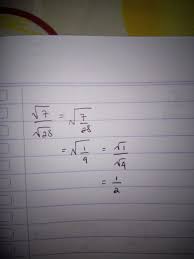 √7/√28 = √(7/28)
= √(1/4) = √1/√4
= 1/2